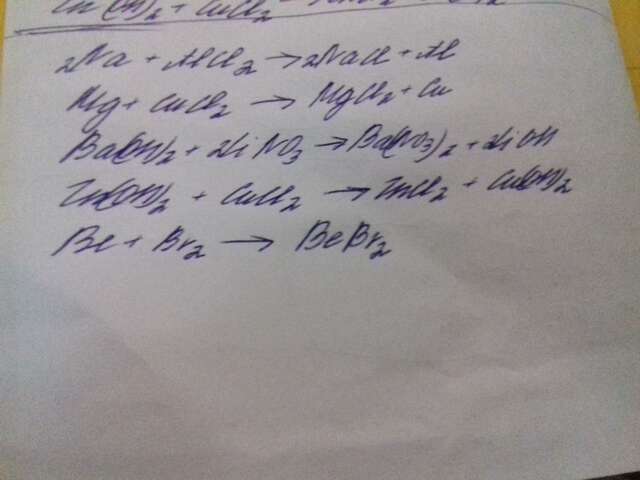 Zn(OH)2 + CuCl2
2Na + AlCl2 → 2NaCl + Al
Mg + CuCl2 → MgCl2 + Cu
Ba(OH)2 + 2LiNO3 → Ba(NO3)2 + 2LiOH
Zn(OH)2 + CuCl2 → ZnCl2 + Cu(OH)2
Be + Br2 → BeBr2